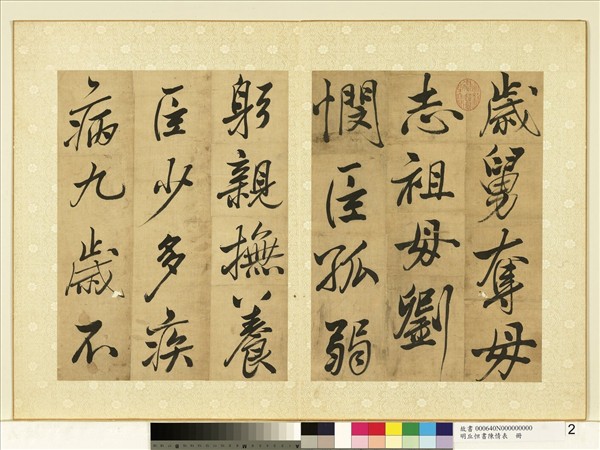 歲舅奪母
志祖母劉
憫臣孤弱
躬親撫養
臣少多疾
病九歲不
故書 000640N000000000
明丘恒書陳情表 冊
2